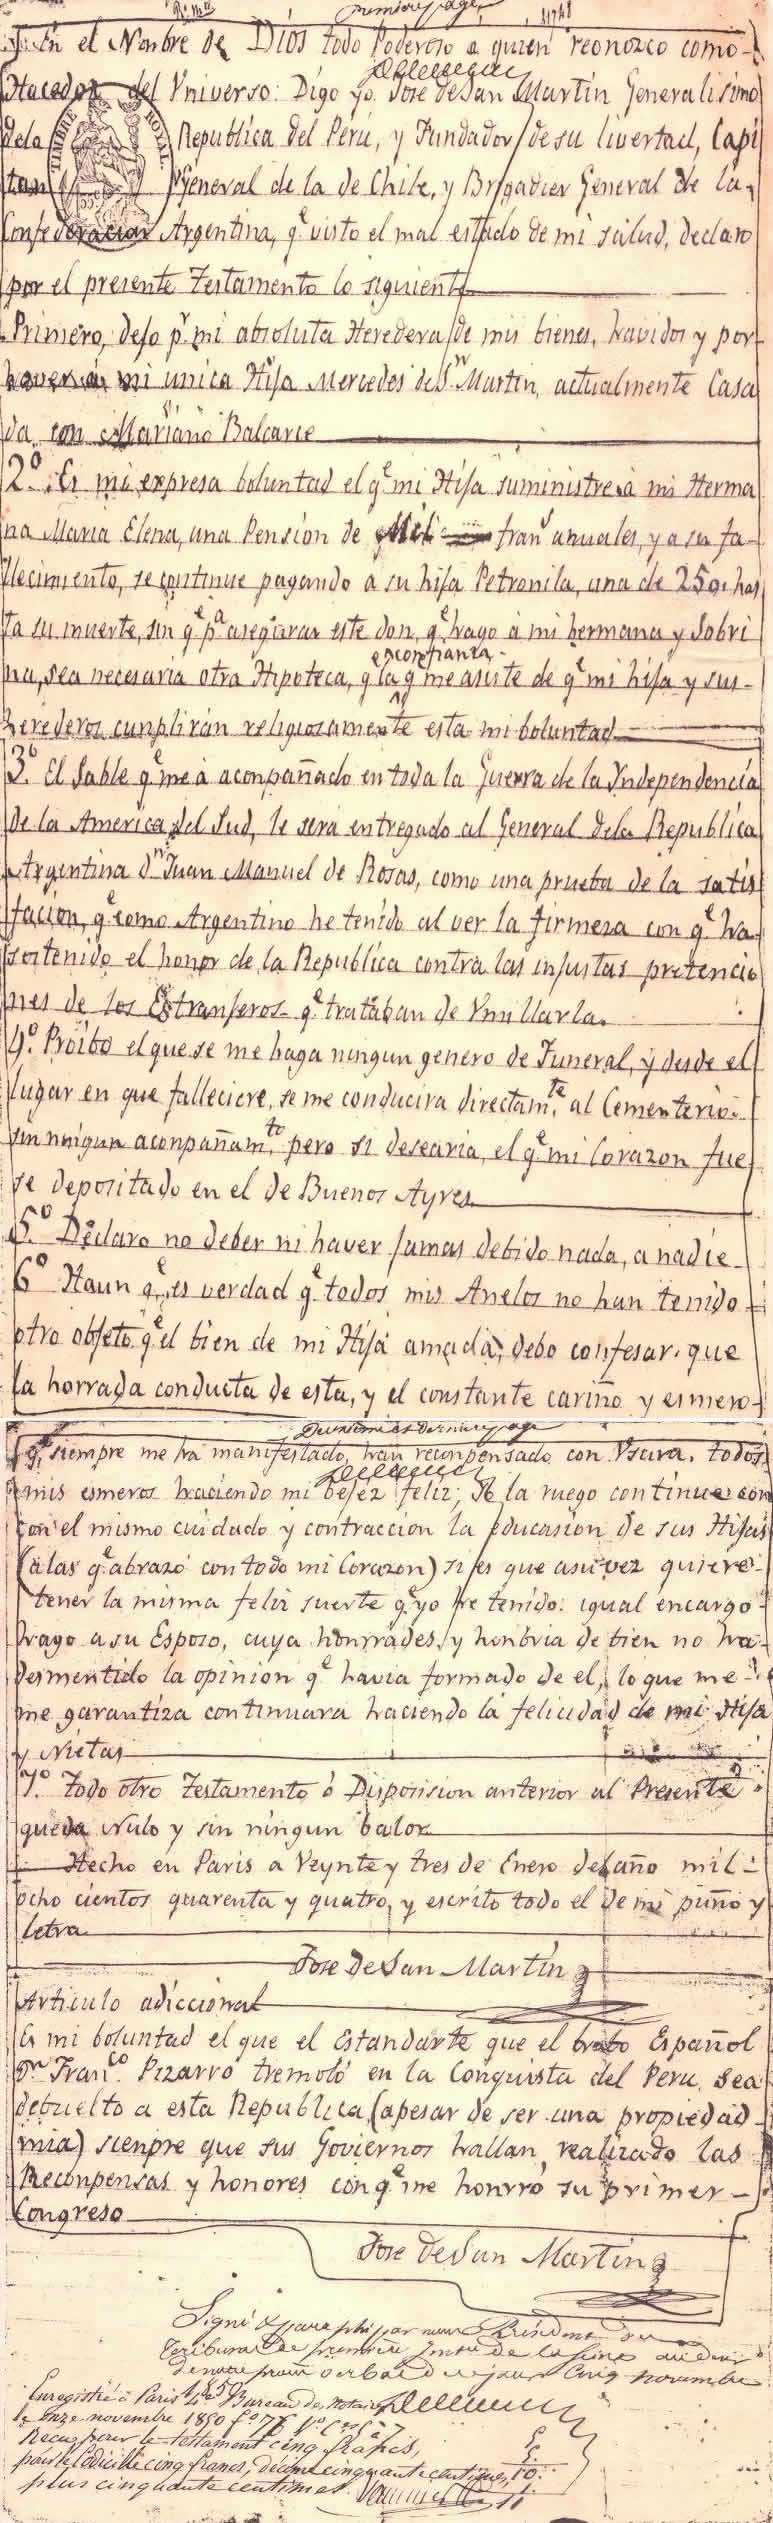 première page
En el Nombre de Dios todo Poderoso a quien reconozco como
Hacedor del Universo: Digo yo Jose de San Martin Generalisimo
TIMBRE ROYAL
dela Republica del Perú, y Fundador de su livertad, Capi
tan General de la de Chile, y Brigadier General de la
Confederacion Argentina, qe visto el mal estado de mi salud, declaro
por el presente Testamento lo siguiente
Primero, dejo pr mi absoluta Heredera de mis bienes, havidos y por
haver á mi unica Hija Mercedes de Sn Martin, actualmente Casa
da con Mariano Balcarce
2o. Es mi expresa boluntad el qe mi Hija suministre á mi Herma
na Maria Elena, una Pension de Mil frans anuales, y a su fa-
llecimiento, se continue pagando a su hija Petronila, una de 250, has
ta su muerte, sin qe pa asegurar este don qe hago á mi hermana y Sobri
na, sea necesaria otra Hipoteca, q la confianza q me asiste de qe mi hija y sus
herederos cunplirán religiosamente esta mi boluntad
3o. El Sable qe me á aconpañado en toda la Guerra de la Yndependencia
de la America del Sud, le será entregado al General dela Republica
Argentina dn Juan Manuel de Rosas, como una prueba de la satis
facion, qe como Argentino he tenido al ver la firmesa con qe ha
sostenido el honor de la Republica contra las injustas pretencio
nes de los Extranjeros qe trataban de Vmillarla.
4o. Proibo el que se me haga ningun genero de Funeral, y desde el
lugar en que falleciere, se me conducira directamte al Cementerio
sin ningun aconpañamto pero si desearia, el qe mi Corazon fue
se depositado en el de Buenos Ayres
5o. Declaro no deber ni haver jamas debido nada, a nadie
6o Haun qe es verdad qe todos mis Anelos no han tenido
otro objeto qe el bien de mi Hija amada, debo confesar, que
la honrrada conducta de esta, y el constante cariño y esmero
Deuxieme et derniere page
qe siempre me ha manifestado, han reconpensado con Vsura, todos
mis esmeros haciendo mi bejez feliz; Yo la ruego continue con
con el mismo cuidado y contraccion la educasion de sus Hijas
(a las qe abrazo con todo mi Corazon) si es que asu vez quiere
tener la misma feliz suerte qe yo he tenido: igual encargo
hago a su Esposo, cuya honrrades, y honbria de bien no ha
desmentido la opinion qe havia formado de el, lo que me
me garantiza continuara haciendo la felicidad de mi Hija
y Nietas
7o. Todo otro Testamento ó Disposision anterior al Presente
queda Nulo y sin ningun balor
Hecho en Paris a Veynte y tres de Enero del año mil
ocho cientos quarenta y quatro, y escrito todo el de mi puño y
letra
Jose De San Martin
Articulo adiccional
Es mi boluntad el que el Estandarte que el brabo Español
Dn Franco. Pizarro tremoló en la Conquista del Peru sea
debuelto a esta Republica (apesar de ser una propiedad
mia) sienpre que sus Goviernos hallan realizado las
Reconpensas y honores con qe me honrró su primer
Congreso
Jose De San Martin
Signé & paraphé par nous Président du
Tribunal de première Instce de la Seine au desir
de notre procès verbal de ce jour Cinq novembre
1850
Enregistré à Paris Bureau des Notaires
le onze novembre 1850 fo 76
Reçu pour le testament cinq francs,
pour le Codicille cinq francs, décime cinquante centimes,
plus cinquante centimes